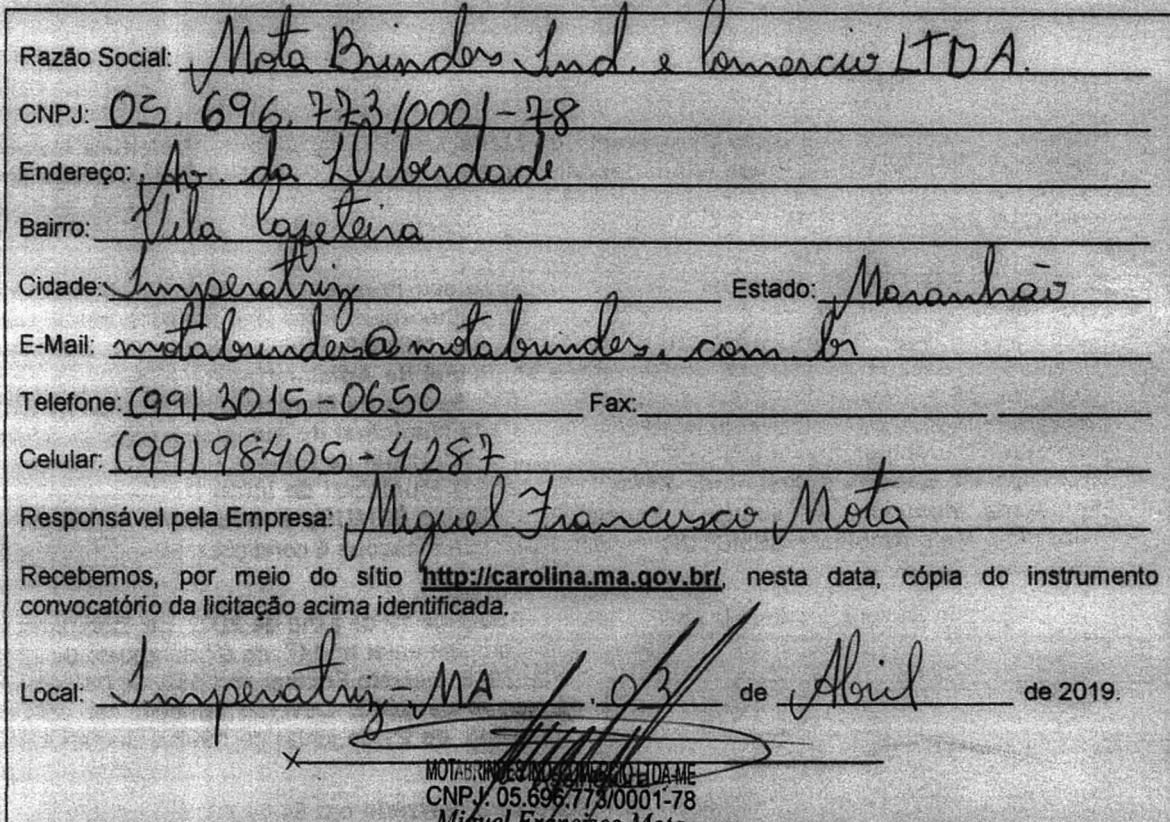 Razão Social: Mota Brindes Ind. e Comercio LTDA.
CNPJ: 05.696.773/0001-78
Endereço: Av. da Liberdade
Bairro: Vila Cafeteira
Cidade: Imperatriz Estado: Maranhão
E-Mail: motabrindes@motabrindes.com.br
Telefone: (99) 3015-0650 Fax:
Celular: (99) 98405-4287
Responsável pela Empresa: Miguel Francisco Mota
Recebemos, por meio do sítio http://carolina.ma.gov.br/, nesta data, cópia do instrumento
convocatório da licitação acima identificada.
Local: Imperatriz-MA, 03 de Abril de 2019.
x
MOTABRINDES IND. COMERCIO LTDA-ME
CNPJ: 05.696.773/0001-78
Miguel Francisco Mota